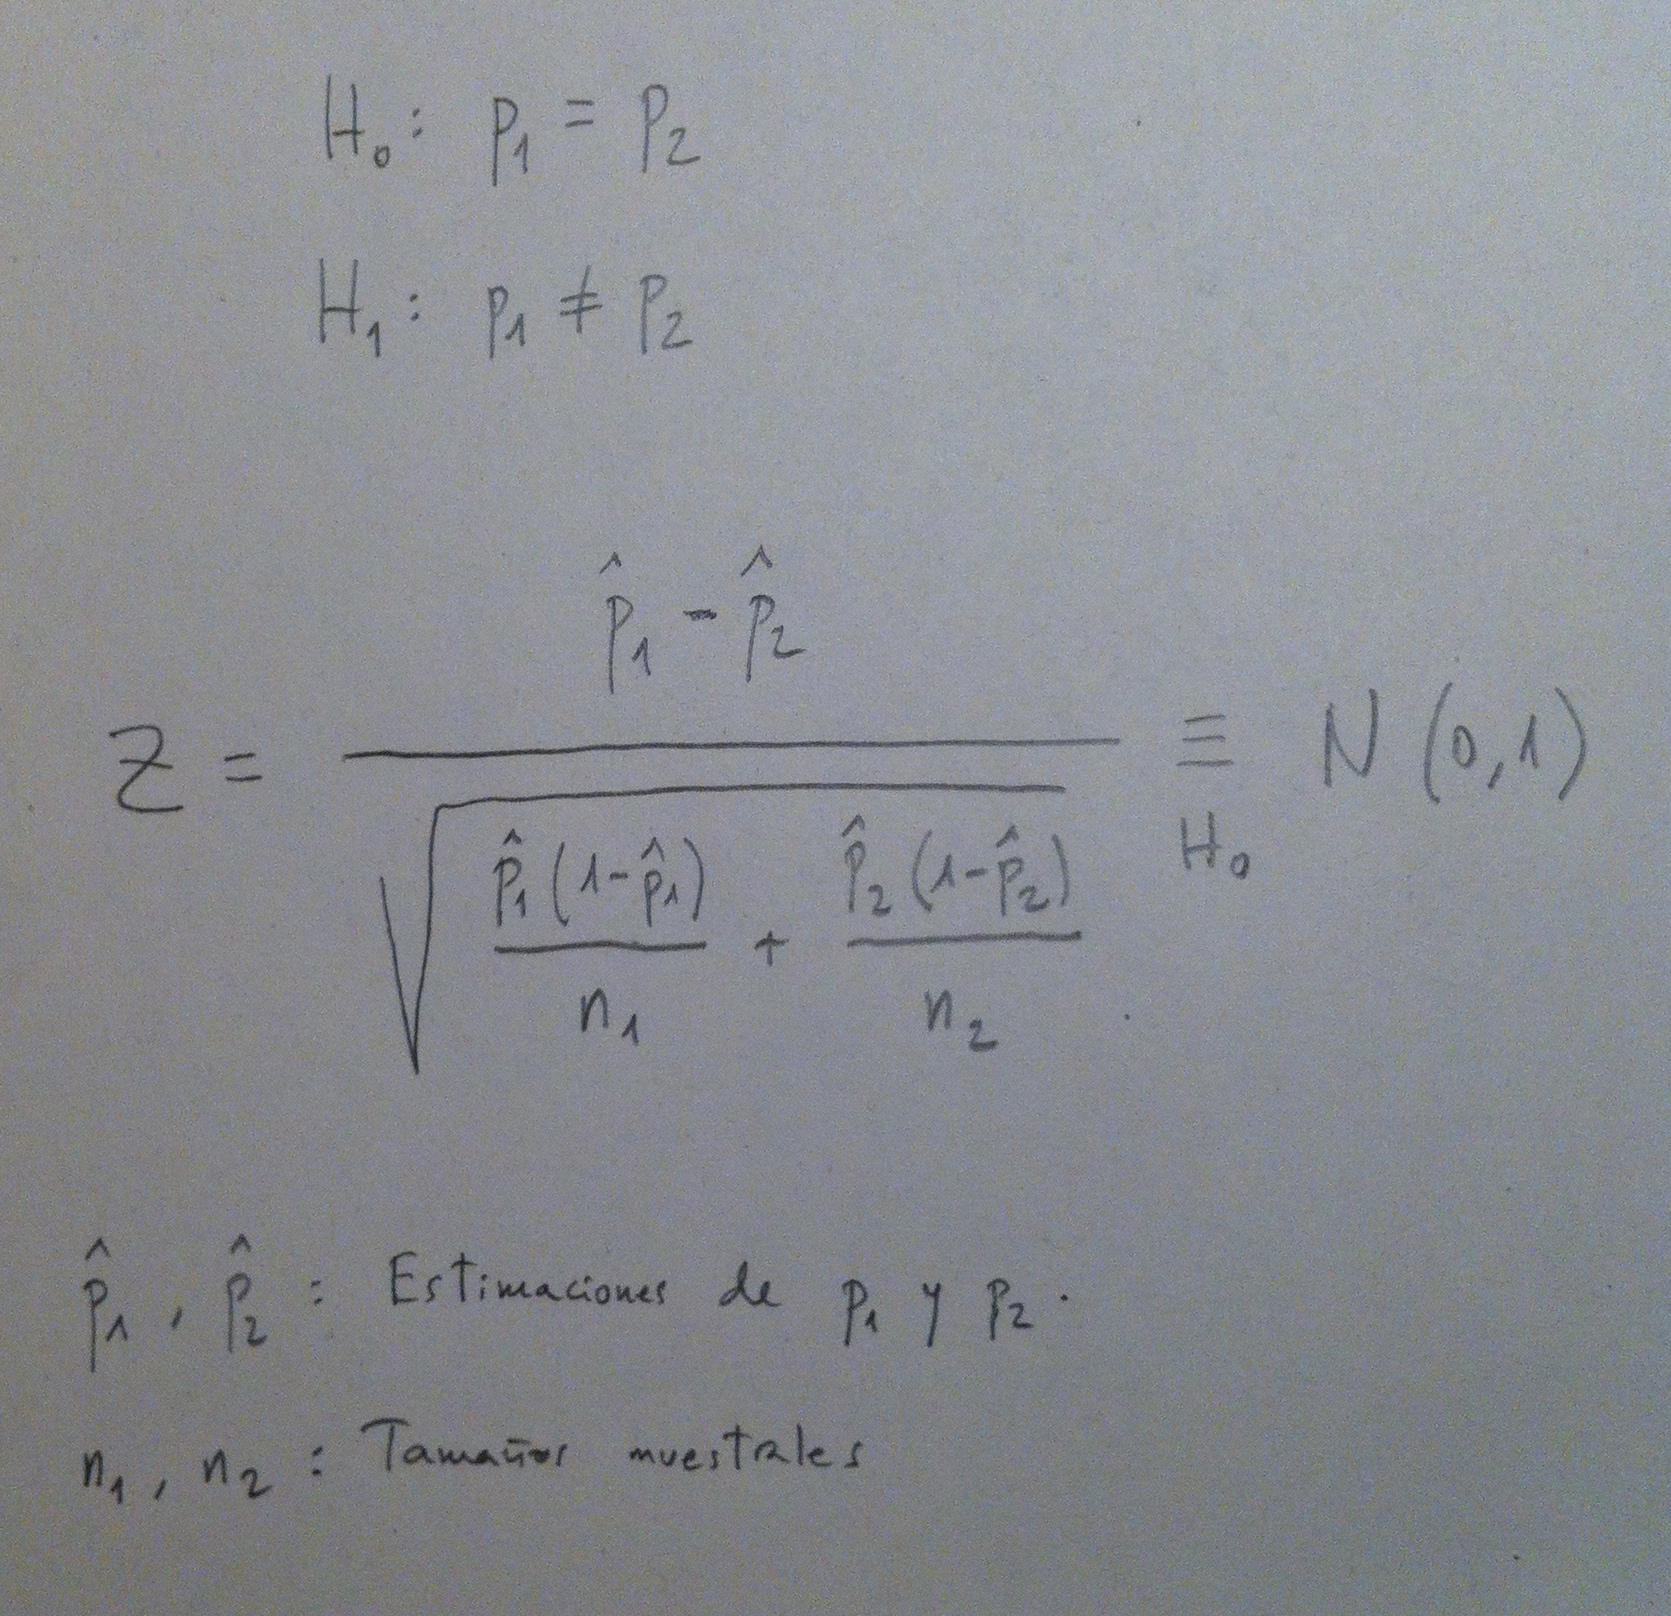 H₀: p₁ = p₂
H₁: p₁ ≠ p₂
p̂₁ - p̂₂
Z = ≡ N(0,1)
H₀
√ p̂₁(1-p̂₁) + p̂₂(1-p̂₂)
n₁ n₂
p̂₁, p̂₂: Estimaciones de p₁ y p₂.
n₁, n₂: Tamaños muestrales